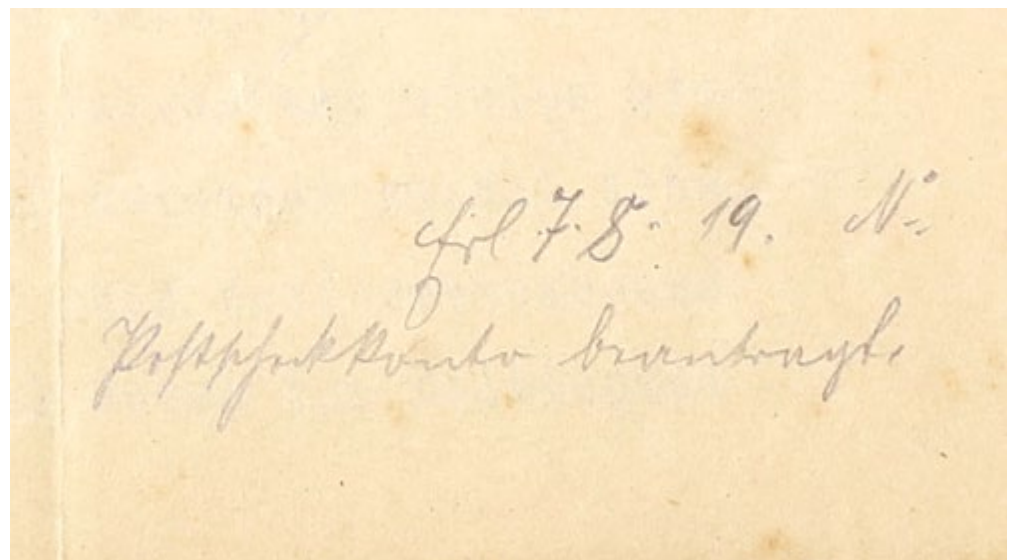 Erl 7. 8. 19. N.
Postscheckkonto beantragt.